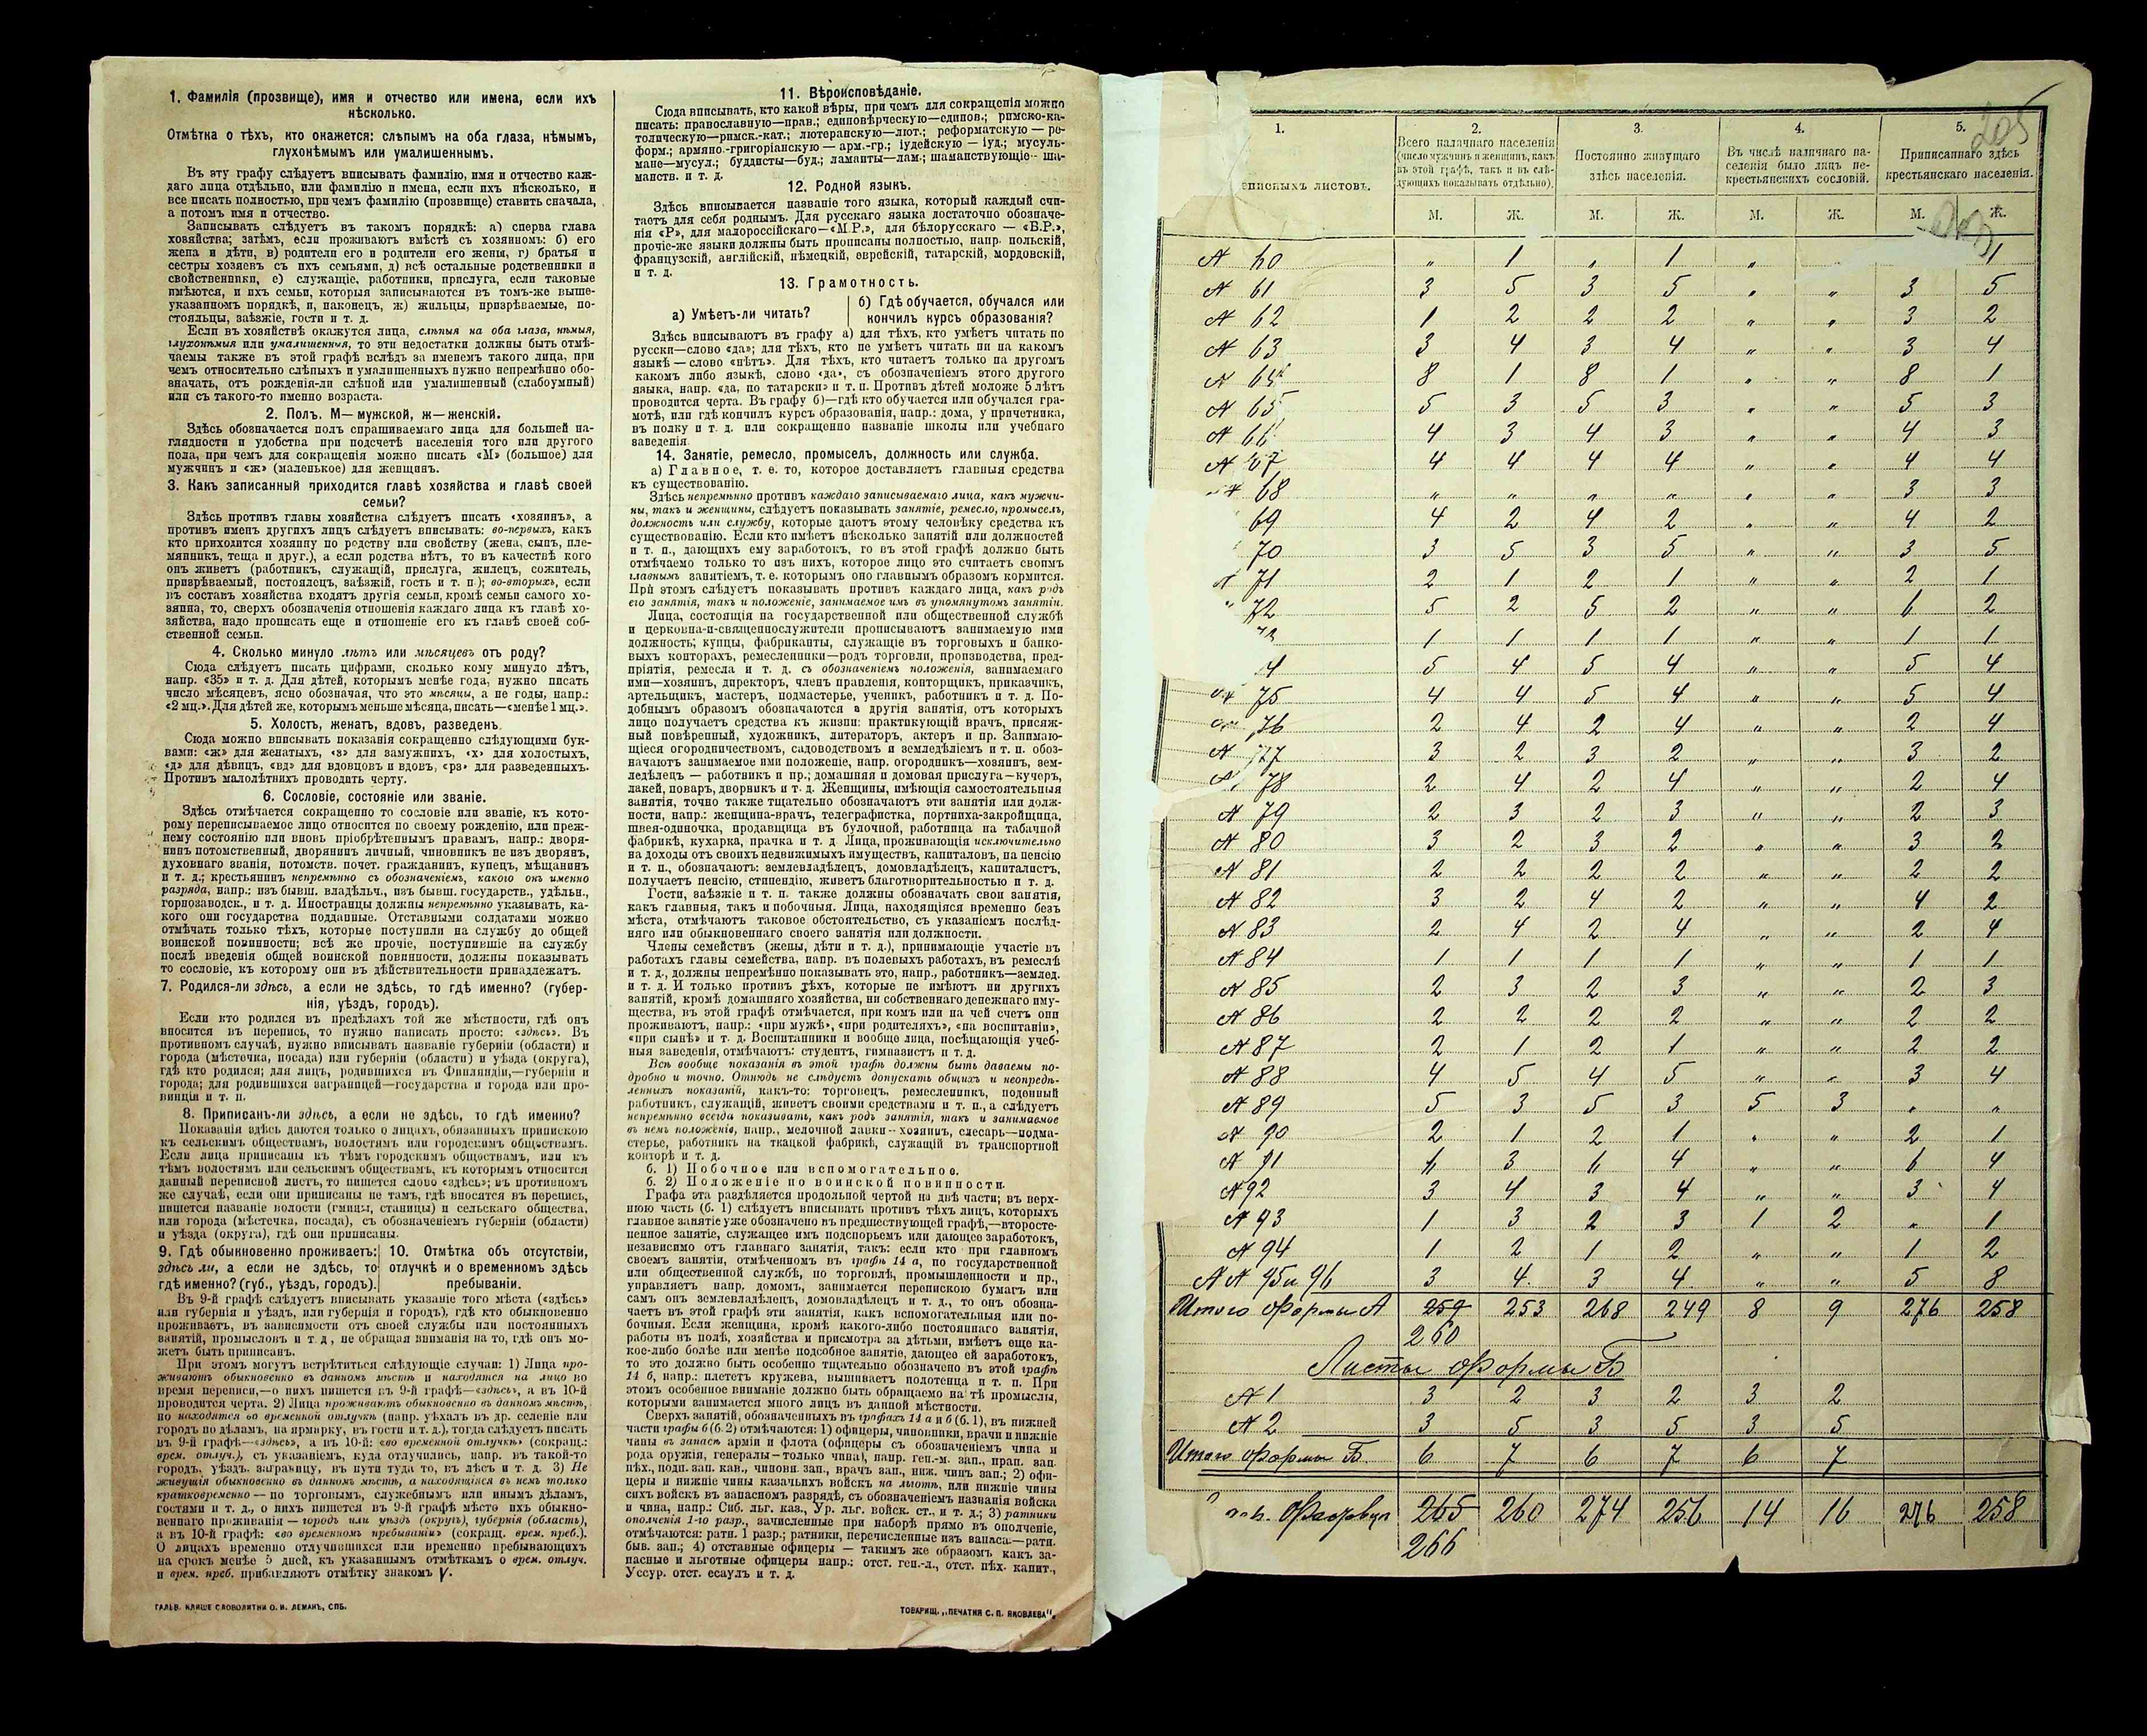 1. Фамилія (прозвище), имя и отчество или имена, если ихъ
нѣсколько.
Отмѣтка о тѣхъ, кто окажется: слѣпымъ на оба глаза, нѣмымъ,
глухонѣмымъ или умалишеннымъ.
Въ эту графу слѣдуетъ вписывать фамилію, имя и отчество каж-
даго лица отдѣльно, или фамилію и имена, если ихъ нѣсколько, и
все писать полностью, при чемъ фамилію (прозвище) ставить сначала,
а потомъ имя и отчество.
Записывать слѣдуетъ въ такомъ порядкѣ: а) сперва глава
хозяйства; затѣмъ, если проживаютъ вмѣстѣ съ хозяиномъ: б) его
жена и дѣти, в) родители его и родители его жены, г) братья и
сестры хозяевъ съ ихъ семьями, д) всѣ остальные родственники и
свойственники, е) служащіе, работники, прислуга, если таковые
имѣются, и ихъ семьи, которыя записываются въ томъ-же выше-
указанномъ порядкѣ, и, наконецъ, ж) жильцы, призрѣваемые, по-
стояльцы, заѣзжіе, гости и т. п.
Если въ хозяйствѣ окажутся лица, слѣпыя на оба глаза, нѣмыя,
глухонѣмыя или умалишенныя, то эти недостатки должны быть отмѣ-
чаемы также въ этой графѣ вслѣдъ за именемъ такого лица, при
чемъ относительно слѣпыхъ и умалишенныхъ нужно непремѣнно обо-
значать, отъ рожденія-ли слѣпой или умалишенный (слабоумный)
или съ такого-то именно возраста.
2. Полъ. М— мужской, ж—женскій.
Здѣсь обозначается полъ спрашиваемаго лица для большей на-
глядности и удобства при подсчетѣ населенія того или другого
пола, при чемъ для сокращенія можно писать «М» (большое) для
мужчинъ и «ж» (маленькое) для женщинъ.
3. Какъ записанный приходится главѣ хозяйства и главѣ своей
семьи?
Здѣсь противъ главы хозяйства слѣдуетъ писать «хозяинъ», а
противъ именъ другихъ лицъ слѣдуетъ вписывать: во-первыхъ, какъ
кто приходится хозяину по родству или свойству (жена, сынъ, пле-
мянникъ, теща и друг.), а если родства нѣтъ, то въ качествѣ кого
онъ живетъ (работникъ, служащій, прислуга, жилецъ, сожитель,
призрѣваемый, постоялецъ, заѣзжій, гость и т. п.); во-вторыхъ, если
въ составъ хозяйства входятъ другія семьи, кромѣ семьи самого хо-
зяина, то, сверхъ обозначенія отношенія каждаго лица къ главѣ хо-
зяйства, надо прописать еще и отношеніе его къ главѣ своей соб-
ственной семьи.
4. Сколько минуло лѣтъ или мѣсяцевъ отъ роду?
Сюда слѣдуетъ писать цифрами, сколько кому минуло лѣтъ,
напр. «35» и т. д. Для дѣтей, которымъ менѣе года, нужно писать
число мѣсяцевъ, ясно обозначая, что это мѣсяцы, а не годы, напр.:
«2 мц.». Для дѣтей же, которымъ меньше мѣсяца, писать—«менѣе 1 мц.».
5. Холостъ, женатъ, вдовъ, разведенъ.
Сюда можно вписывать показанія сокращенно слѣдующими бук-
вами: «ж» для женатыхъ, «з» для замужнихъ, «х» для холостыхъ,
«д» для дѣвицъ, «вд» для вдовцовъ и вдовъ, «рз» для разведенныхъ.
Противъ малолѣтнихъ проводить черту.
6. Сословіе, состояніе или званіе.
Здѣсь отмѣчается сокращенно то сословіе или званіе, къ кото-
рому переписываемое лицо относится по своему рожденію, или преж-
нему состоянію или вновь пріобрѣтеннымъ правамъ, напр.: дворя-
нинъ потомственный, дворянинъ личный, чиновникъ не изъ дворянъ,
духовнаго званія, потомств. почет. гражданинъ, купецъ, мѣщанинъ
и т. д.; крестьянинъ непремѣнно съ обозначеніемъ, какого онъ именно
разряда, напр.: изъ бывш. владѣльч., изъ бывш. государств., удѣльн.,
горнозаводск., и т. д. Иностранцы должны непремѣнно указывать, ка-
кого они государства подданные. Отставными солдатами можно
отмѣчать только тѣхъ, которые поступили на службу до общей
воинской повинности; всѣ же прочіе, поступившіе на службу
послѣ введенія общей воинской повинности, должны показывать
то сословіе, къ которому они въ дѣйствительности принадлежатъ.
7. Родился-ли здѣсь, а если не здѣсь, то гдѣ именно? (губер-
нія, уѣздъ, городъ).
Если кто родился въ предѣлахъ той же мѣстности, гдѣ онъ
вносится въ перепись, то нужно написать просто: «здѣсь». Въ
противномъ случаѣ, нужно вписывать названіе губерніи (области) и
города (мѣстечка, посада) или губерніи (области) и уѣзда (округа),
гдѣ кто родился; для лицъ, родившихся въ Финляндіи,—губерніи и
города; для родившихся заграницей—государства и города или про-
винціи и т. п.
8. Приписанъ-ли здѣсь, а если не здѣсь, то гдѣ именно?
Показанія здѣсь даются только о лицахъ, обязанныхъ припискою
къ сельскимъ обществамъ, волостямъ или городскимъ обществамъ.
Если лица приписаны къ тѣмъ городскимъ обществамъ, или къ
тѣмъ волостямъ или сельскимъ обществамъ, къ которымъ относится
данный переписной листъ, то пишется слово «здѣсь»; въ противномъ
же случаѣ, если они приписаны не тамъ, гдѣ вносятся въ перепись,
пишется названіе волости (гмины, станицы) и сельскаго общества,
или города (мѣстечка, посада), съ обозначеніемъ губерніи (области)
и уѣзда (округа), гдѣ они приписаны.
9. Гдѣ обыкновенно проживаетъ: 10. Отмѣтка объ отсутствіи,
здѣсь ли, а если не здѣсь, то отлучкѣ и о временномъ здѣсь
гдѣ именно? (губ., уѣздъ, городъ). пребываніи.
Въ 9-й графѣ слѣдуетъ вписывать указаніе того мѣста («здѣсь»
или губернія и уѣздъ, или губернія и городъ), гдѣ кто обыкновенно
проживаетъ, въ зависимости отъ своей службы или постоянныхъ
занятій, промысловъ и т. д., не обращая вниманія на то, гдѣ онъ мо-
жетъ быть приписанъ.
При этомъ могутъ встрѣтиться слѣдующіе случаи: 1) Лица про-
живаютъ обыкновенно въ данномъ мѣстѣ и находятся на лицо во
время переписи,—о нихъ пишется въ 9-й графѣ—«здѣсь», а въ 10-й
проводится черта. 2) Лица проживаютъ обыкновенно въ данномъ мѣстѣ,
но находятся во временной отлучкѣ (напр. уѣхалъ въ др. селеніе или
городъ по дѣламъ, на ярмарку, въ гости и т. д.), тогда слѣдуетъ писать
въ 9-й графѣ—«здѣсь», а въ 10-й: «во временной отлучкѣ» (сокращ.:
врем. отлуч.), съ указаніемъ, куда отлучились, напр. въ такой-то
городъ, уѣздъ, заграницу, въ пути туда то, въ лѣсъ и т. д. 3) Не
живущія обыкновенно въ данномъ мѣстѣ, а находящіяся въ немъ только
кратковременно — по торговымъ, служебнымъ или инымъ дѣламъ,
гостями и т. д., о нихъ пишется въ 9-й графѣ мѣсто ихъ обыкно-
веннаго проживанія — городъ или уѣздъ (округъ), губернія (область),
а въ 10-й графѣ: «во временномъ пребываніи» (сокращ. врем. преб.).
О лицахъ временно отлучившихся или временно пребывающихъ
на срокъ менѣе 5 дней, къ указаннымъ отмѣткамъ о врем. отлуч.
и врем. преб. прибавляютъ отмѣтку знакомъ V.
ГАЛЬВ. КЛИШЕ СЛОВОЛИТНИ О. И. ЛЕМАНЪ, СПБ.
11. Вѣроисповѣданіе.
Сюда вписывать, кто какой вѣры, при чемъ для сокращенія можно
писать: православную—прав.; единовѣрческую—единов.; римско-ка-
толическую—римск.-кат.; лютеранскую—лют.; реформатскую — ре-
форм.; армяно-григоріанскую — арм.-гр.; іудейскую — іуд.; мусуль-
мане—мусул.; буддисты—буд.; ламаиты—лам.; шаманствующіе— ша-
манств. и т. д.
12. Родной языкъ.
Здѣсь вписывается названіе того языка, который каждый счи-
таетъ для себя роднымъ. Для русскаго языка достаточно обозначе-
нія «Р», для малороссійскаго—«М.Р.», для бѣлорусскаго — «Б.Р.»,
прочіе-же языки должны быть прописаны полностью, напр. польскій,
французскій, англійскій, нѣмецкій, еврейскій, татарскій, мордовскій,
и т. д.
13. Грамотность.
а) Умѣетъ-ли читать? б) Гдѣ обучается, обучался или
кончилъ курсъ образованія?
Здѣсь вписываютъ въ графу а) для тѣхъ, кто умѣетъ читать по
русски—слово «да»; для тѣхъ, кто не умѣетъ читать ни на какомъ
языкѣ — слово «нѣтъ». Для тѣхъ, кто читаетъ только на другомъ
какомъ либо языкѣ, слово «да», съ обозначеніемъ этого другого
языка, напр. «да, по татарски» и т. п. Противъ дѣтей моложе 5 лѣтъ
проводится черта. Въ графу б)—гдѣ кто обучается или обучался гра-
мотѣ, или гдѣ кончилъ курсъ образованія, напр.: дома, у причетника,
въ полку и т. д. или сокращенно названіе школы или учебнаго
заведенія.
14. Занятіе, ремесло, промыселъ, должность или служба.
а) Главное, т. е. то, которое доставляетъ главныя средства
къ существованію.
Здѣсь непремѣнно противъ каждаго записываемаго лица, какъ мужчи-
ны, такъ и женщины, слѣдуетъ показывать занятіе, ремесло, промыселъ,
должность или службу, которые даютъ этому человѣку средства къ
существованію. Если кто имѣетъ нѣсколько занятій или должностей
и т. п., дающихъ ему заработокъ, то въ этой графѣ должно быть
отмѣчаемо только то изъ нихъ, которое лицо это считаетъ своимъ
главнымъ занятіемъ, т. е. которымъ оно главнымъ образомъ кормится.
При этомъ слѣдуетъ показывать противъ каждаго лица, какъ родъ
его занятія, такъ и положеніе, занимаемое имъ въ упомянутомъ занятіи.
Лица, состоящія на государственной или общественной службѣ
и церковно-и-священнослужители прописываютъ занимаемую ими
должность; купцы, фабриканты, служащіе въ торговыхъ и банко-
выхъ конторахъ, ремесленники—родъ торговли, производства, пред-
пріятія, ремесла и т. д. съ обозначеніемъ положенія, занимаемаго
ими—хозяинъ, директоръ, членъ правленія, конторщикъ, приказчикъ,
артельщикъ, мастеръ, подмастерье, ученикъ, работникъ и т. д. По-
добнымъ образомъ обозначаются и другія занятія, отъ которыхъ
лицо получаетъ средства къ жизни: практикующій врачъ, присяж-
ный повѣренный, художникъ, литераторъ, актеръ и пр. Занимаю-
щіеся огородничествомъ, садоводствомъ и земледѣліемъ и т. п. обоз-
начаютъ занимаемое ими положеніе, напр. огородникъ—хозяинъ, зем-
ледѣлецъ — работникъ и пр.; домашняя и домовая прислуга—кучеръ,
лакей, поваръ, дворникъ и т. д. Женщины, имѣющія самостоятельныя
занятія, точно также тщательно обозначаютъ эти занятія или долж-
ности, напр.: женщина-врачъ, телеграфистка, портниха-закройщица,
швея-одиночка, продавщица въ булочной, работница на табачной
фабрикѣ, кухарка, прачка и т. д. Лица, проживающія исключительно
на доходы отъ своихъ недвижимыхъ имуществъ, капиталовъ, на пенсію
и т. п., обозначаютъ: землевладѣлецъ, домовладѣлецъ, капиталистъ,
получаетъ пенсію, стипендію, живетъ благотворительностью и т. д.
Гости, заѣзжіе и т. п. также должны обозначать свои занятія,
какъ главныя, такъ и побочныя. Лица, находящіяся временно безъ
мѣста, отмѣчаютъ таковое обстоятельство, съ указаніемъ послѣд-
няго или обыкновеннаго своего занятія или должности.
Члены семействъ (жены, дѣти и т. д.), принимающіе участіе въ
работахъ главы семейства, напр. въ полевыхъ работахъ, въ ремеслѣ
и т. д., должны непремѣнно показывать это, напр., работникъ—землед.
и т. д. И только противъ тѣхъ, которые не имѣютъ ни другихъ
занятій, кромѣ домашняго хозяйства, ни собственнаго денежнаго иму-
щества, въ этой графѣ отмѣчается, при комъ или на чей счетъ они
проживаютъ, напр.: «при мужѣ», «при родителяхъ», «на воспитаніи»,
«при сынѣ» и т. д. Воспитанники и вообще лица, посѣщающія учеб-
ныя заведенія, отмѣчаютъ: студентъ, гимназистъ и т. д.
Всѣ вообще показанія въ этой графѣ должны быть даваемы по-
дробно и точно. Отнюдь не слѣдуетъ допускать общихъ и неопредѣ-
ленныхъ показаній, какъ-то: торговецъ, ремесленникъ, поденный
работникъ, служащій, живетъ своими средствами и т. п., а слѣдуетъ
непремѣнно всегда показывать, какъ родъ занятія, такъ и занимаемое
въ немъ положеніе, напр., мелочной лавки—хозяинъ, слесарь—подма-
стерье, работникъ на ткацкой фабрикѣ, служащій въ транспортной
конторѣ и т. д.
б. 1) Побочное или вспомогательное.
б. 2) Положеніе по воинской повинности.
Графа эта раздѣляется продольной чертой на двѣ части; въ верх-
нюю часть (б. 1) слѣдуетъ вписывать противъ тѣхъ лицъ, которыхъ
главное занятіе уже обозначено въ предшествующей графѣ,—второсте-
пенное занятіе, служащее имъ подспорьемъ или дающее заработокъ,
независимо отъ главнаго занятія, такъ: если кто при главномъ
своемъ занятіи, отмѣченномъ въ графѣ 14 а, по государственной
или общественной службѣ, по торговлѣ, промышленности и пр.,
управляетъ напр. домомъ, занимается перепискою бумагъ или
самъ онъ землевладѣлецъ, домовладѣлецъ и т. д., то онъ обозна-
чаетъ въ этой графѣ эти занятія, какъ вспомогательныя или по-
бочныя. Если женщина, кромѣ какого-либо постояннаго занятія,
работы въ полѣ, хозяйства и присмотра за дѣтьми, имѣетъ еще ка-
кое-либо болѣе или менѣе подсобное занятіе, дающее ей заработокъ,
то это должно быть особенно тщательно обозначено въ этой графѣ
14 б, напр.: плететъ кружева, вышиваетъ полотенца и т. п. При
этомъ особенное вниманіе должно быть обращаемо на тѣ промыслы,
которыми занимается много лицъ въ данной мѣстности.
Сверхъ занятій, обозначенныхъ въ графахъ 14 а и б (б. 1), въ нижней
части графы б (б. 2) отмѣчаются: 1) офицеры, чиновники, врачи и нижніе
чины въ запасѣ арміи и флота (офицеры съ обозначеніемъ чина и
рода оружія, генералы—только чина), напр. ген.-м. зап., прап. зап.
пѣх., подп. зап. кав., чиновн. зап., врачъ зап., ниж. чинъ зап.; 2) офи-
церы и нижніе чины казачьихъ войскъ на льготѣ, или нижніе чины
сихъ войскъ въ запасномъ разрядѣ, съ обозначеніемъ названія войска
и чина, напр.: Сиб. льг. каз., Ур. льг. войск. ст., и т. д.; 3) ратники
ополченія 1-го разр., зачисленные при наборѣ прямо въ ополченіе,
отмѣчаются: ратн. 1 разр.; ратники, перечисленные изъ запаса.—ратн.
быв. зап.; 4) отставные офицеры — такимъ же образомъ какъ за-
пасные и льготные офицеры напр.: отст. ген.-л., отст. пѣх. капит.,
Уссур. отст. есаулъ и т. д.
ТОВАРИЩ. „ПЕЧАТНЯ С. П. ЯКОВЛЕВА".
205
1. 2. 3. 4. 5.
еписныхъ листовъ.
Всего наличнаго населенія
(число мужчинъ и женщинъ, какъ
въ этой графѣ, такъ и въ слѣ-
дующихъ показывать отдѣльно).
Постоянно живущаго
здѣсь населенія.
Въ числѣ наличнаго на-
селенія было лицъ не-
крестьянскихъ сословій.
Приписаннаго здѣсь
крестьянскаго населенія.
М. Ж. М. Ж. М. Ж. М. Ж.
№ 60 „ 1 „ 1 „ 1
№ 61 3 5 3 5 „ „ 3 5
№ 62 1 2 2 2 „ „ 3 2
№ 63 3 4 3 4 „ „ 3 4
№ 64 8 1 8 1 „ „ 8 1
№ 65 5 3 5 3 „ „ 5 3
№ 66 4 3 4 3 „ „ 4 3
№ 67 4 4 4 4 „ „ 4 4
№ 68 „ „ „ „ „ „ 3 3
69 4 2 4 2 „ „ 4 2
70 3 5 3 5 „ „ 3 5
№ 71 2 1 2 1 „ „ 2 1
72 5 2 5 2 „ „ 6 2
1 1 1 1 „ „ 1 1
4 5 4 5 4 „ „ 5 4
№ 75 4 4 5 4 „ „ 5 4
№ 76 2 4 2 4 „ „ 2 4
№ 77 3 2 3 2 „ „ 3 2
№ 78 2 4 2 4 „ „ 2 4
№ 79 2 3 2 3 „ „ 2 3
№ 80 3 2 3 2 „ „ 3 2
№ 81 2 2 2 2 „ „ 2 2
№ 82 3 2 4 2 „ „ 4 2
№ 83 2 4 2 4 „ „ 2 4
№ 84 1 1 1 1 „ „ 1 1
№ 85 2 3 2 3 „ „ 2 3
№ 86 2 2 2 2 „ „ 2 2
№ 87 2 1 2 1 „ „ 2 2
№ 88 4 5 4 5 „ „ 3 4
№ 89 5 3 5 3 5 3 „ „
№ 90 2 1 2 1 „ „ 2 1
№ 91 6 3 6 4 „ „ 6 4
№ 92 3 4 3 4 „ „ 3 4
№ 93 1 3 2 3 1 2 „ 1
№ 94 1 2 1 2 „ „ 1 2
№ № 95 и 96 3 4 3 4 „ „ 5 8
Итого формы А 259 253 268 249 8 9 276 258
260
Листы формы Б
№ 1 3 2 3 2 3 2
№ 2 3 5 3 5 3 5
Итого формы Б 6 7 6 7 6 7
265 260 274 256 14 16 276 258
266